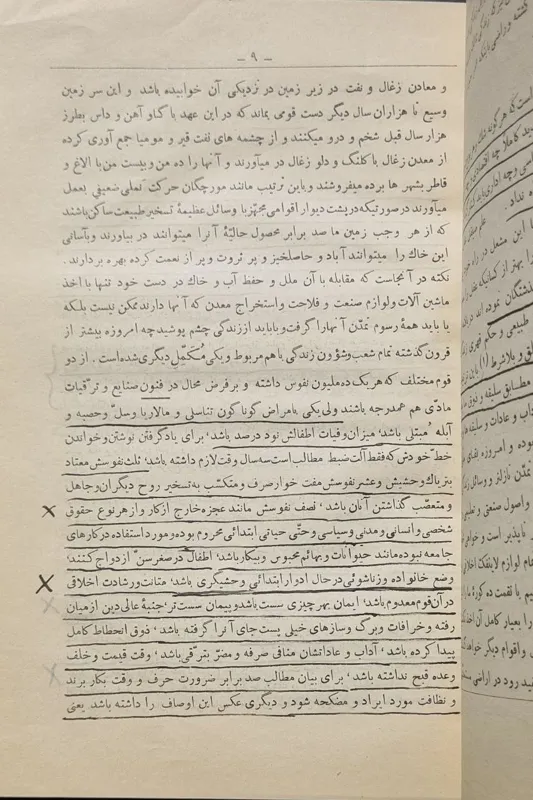 - ۹ -
و معادن زغال و نفت در زیر زمین در نزدیکی آن خوابیده باشد و این سر زمین
وسیع تا هزاران سال دیگر دست قومی بماند که در این عهد با گاو آهن و داس بطرز
هزار سال قبل شخم و درو میکنند و از چشمه های نفت قیر و مومیا جمع آوری کرده
از معدن زغال با کلنگ و دلو زغال در میآورند و آنها را ده من و بیست من با الاغ و
قاطر بشهر ها برده میفروشند و باین ترتیب مانند مورچگان حرکت تملی ضعیفی بعمل
میآورند در صورتیکه در پشت دیوار اقوامی مجهّز با وسائل عظیمهٔ تسخیر طبیعت ساکن باشند
که از هر وجب زمین ما صد برابر محصول حالیّهٔ آنرا میتوانند در بیاورند و بآسانی
این خاك را میتوانند آباد و حاصلخیز و پر ثروت و پر از نعمت کرده بهره بردارند.
نکته در آنجاست که مقابله با آن ملل و حفظ آب و خاك در دست خود تنها با اخذ
ماشین آلات و لوازم صنعت و فلاحت و استخراج معدن که آنها دارند ممکن نیست بلکه
یا باید همهٔ رسوم تمدّن آنها را گرفت و یا باید از زندگی چشم پوشید چه امروزه بیشتر از
قرون گذشته تمام شعب و شؤون زندگی با هم مربوط و یکی مُکمّل دیگری شده است. از دو
قوم مختلف که هریك ده ملیون نفوس داشته و بر فرض محال در فنون صنایع و ترّقیات
مادّی هم همدرجه باشند ولی یکی بامراض گوناگون تناسلی و مالاریا وسلّ وحصبه و
آبله مُبتلی باشد، میزان وفیات اطفالش نود درصد باشد، برای یاد گرفتن نوشتن وخواندن
خطّ خودش که فقط آلت ضبط مطالب است سه سال وقت لازم داشته باشد، ثلث نفوسش معتاد
بتریاك وحشیش وعشر نفوسش مفت خوار صرف و متکسّب به تسخیر روح دیگران وجاهل
و متعصّب گذاشتن آنان باشد، نصف نفوسش مانند عجزه خارج از کار و از هر نوع حقوق
شخصی و انسانی و مدنی وسیاسی وحتّی حیاتی ابتدائی محروم بوده و مورد استفاده در کارهای
جامعه نبوده مانند حیوانات وبهائم محبوس وبیکار باشد، اطفال در صغر سنّ ازدواج کنند،
وضع خانواده وزناشوئی در حال ادوار ابتدائی وحشیگری باشد، متانت ورشادت اخلاقی
در آن قوم معدوم باشد، ایمان بهر چیزی سست باشد و پیمان سست تر، جنبهٔ عالی دین از میان
رفته و خرافات وبرگ وسازهای خیلی پست جای آنرا گرفته باشد، ذوق انحطاط کامل
پیدا کرده باشد، آداب و عاداتشان منافی صرفه و مضرّ بترقّی باشد، وقت قیمت و خلف
وعده قبح نداشته باشد، برای بیان مطالب صد برابر ضرورت حرف و وقت بکار برند
و نظافت مورد ایراد و مضحکه شود و دیگری عکس این اوصاف را داشته باشد یعنی